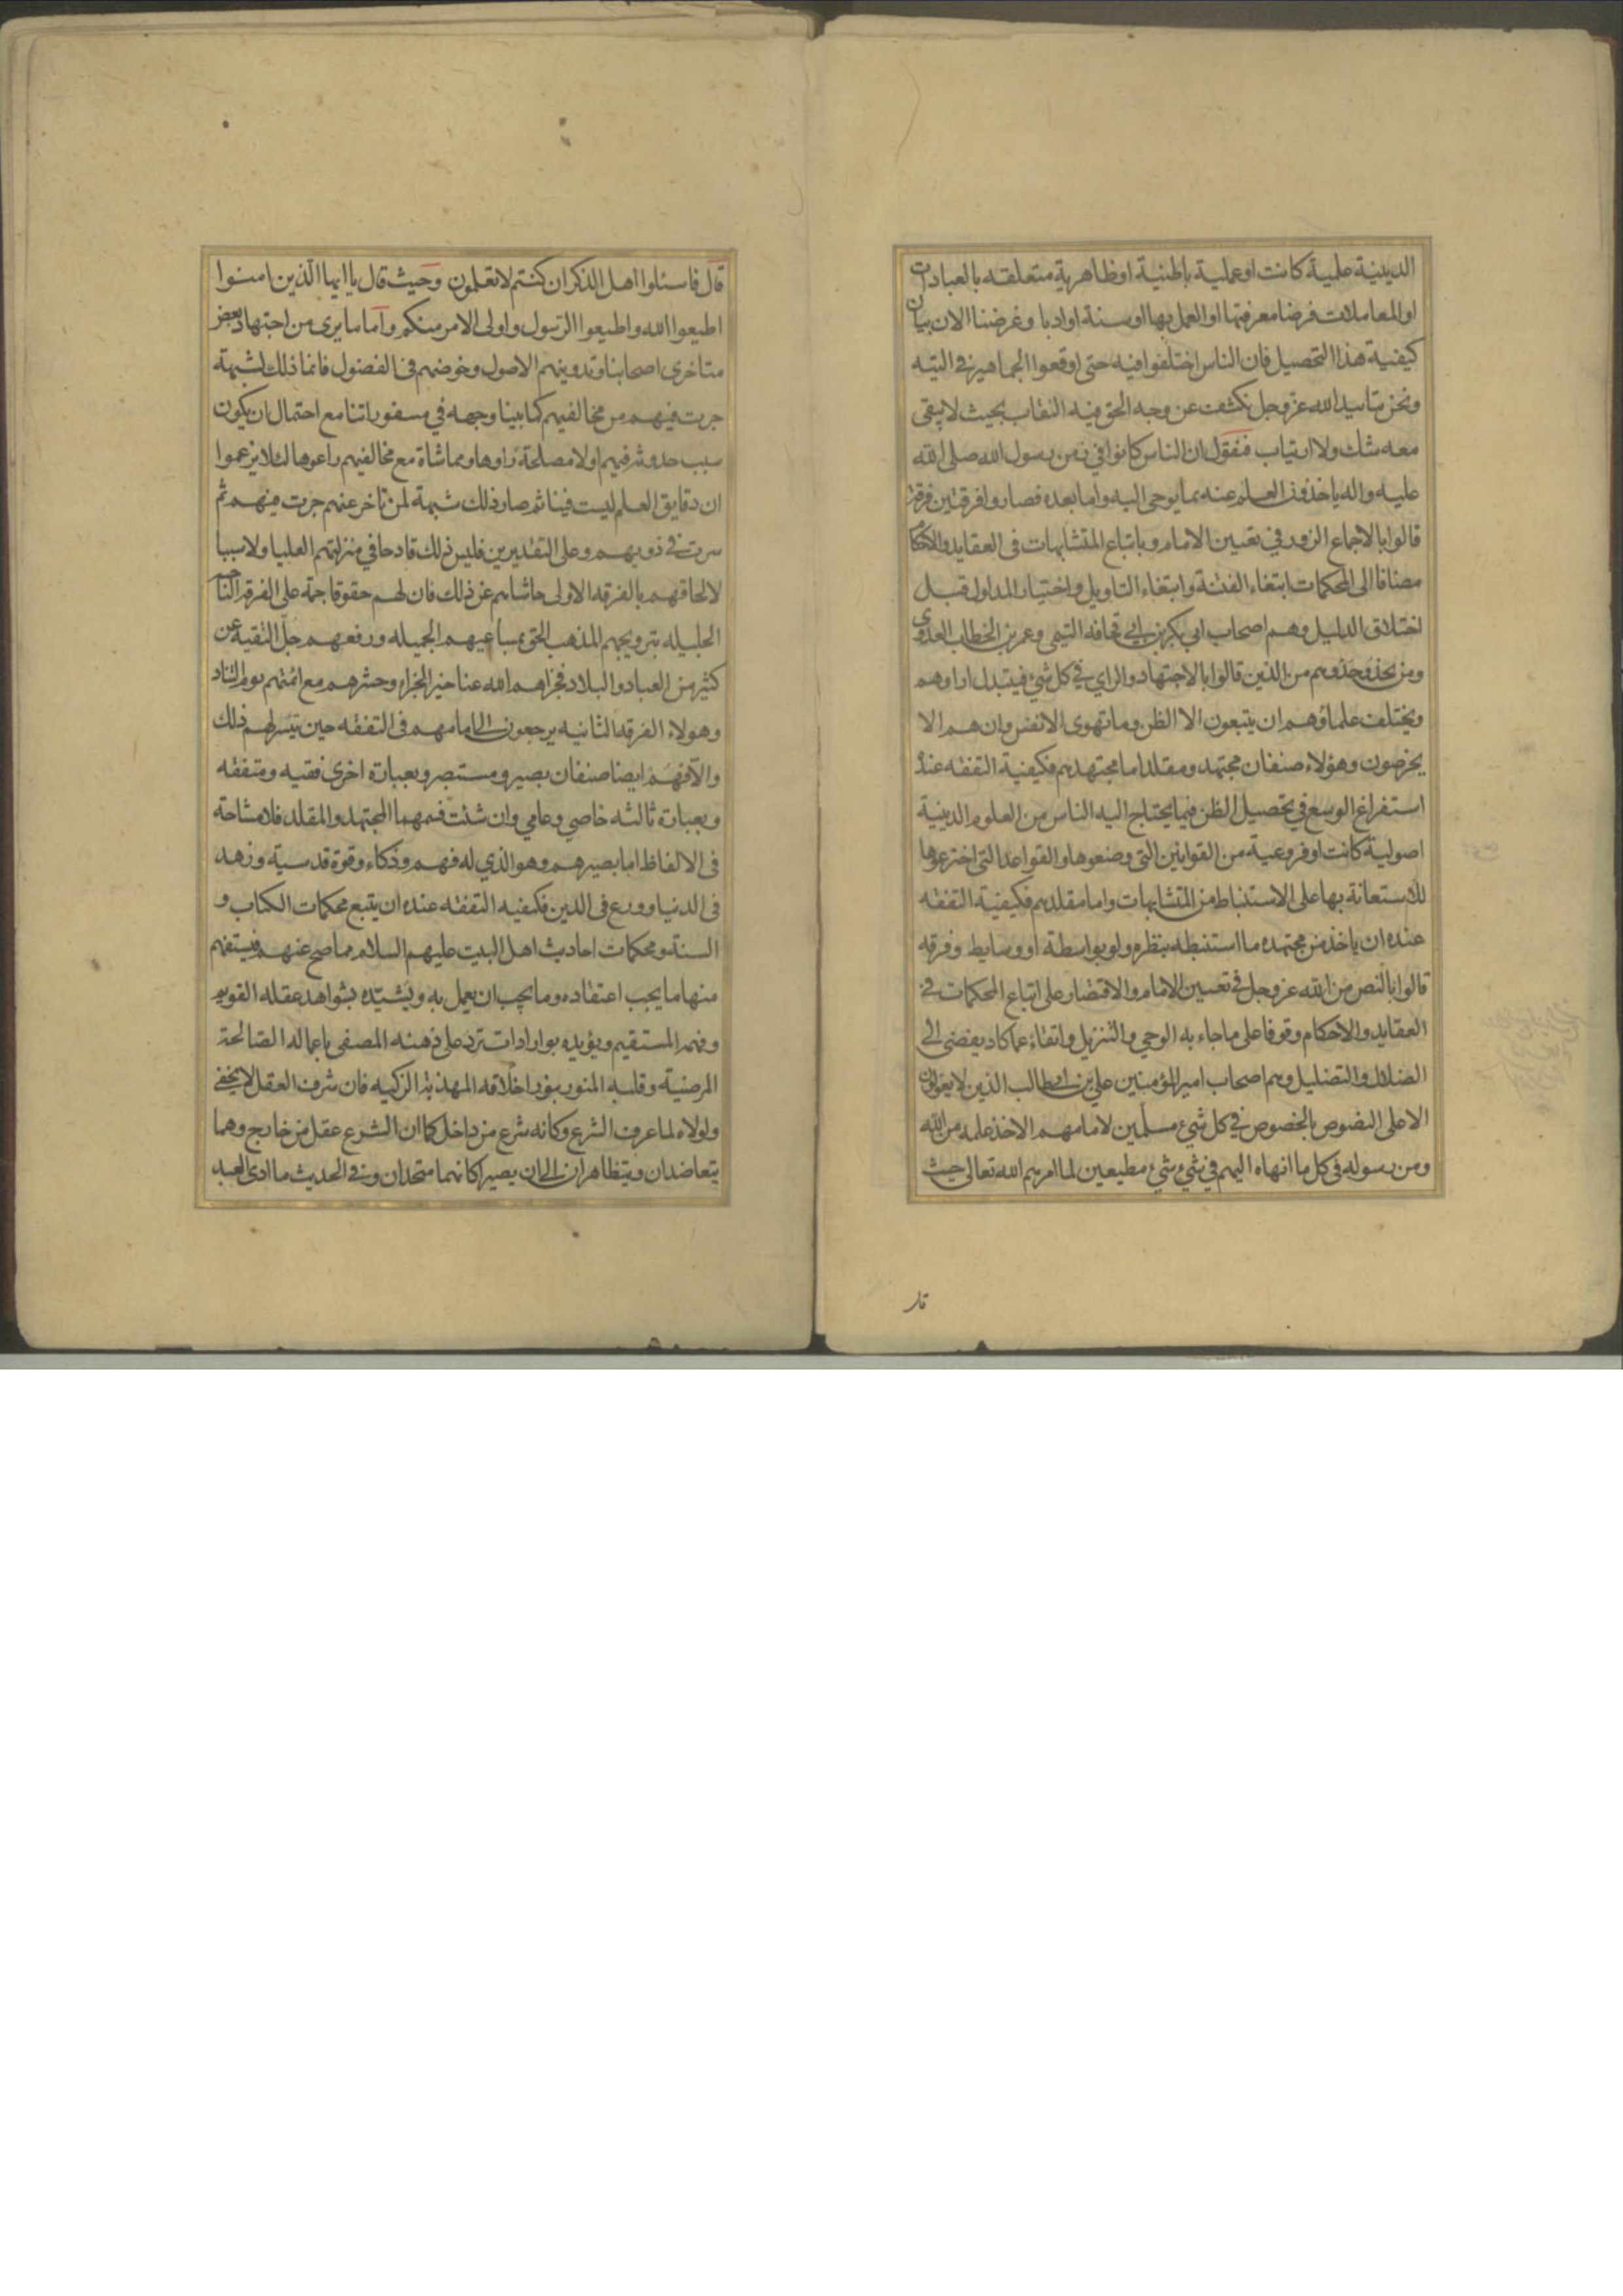 الدينية علمية كانت او عملية باطنية او ظاهرية متعلقه بالعبادات
او المعاملات فرضا معرفتها او العمل بها او سنة او ادبا وغرضنا الان بيان
كيفية هذا التحصيل فان الناس اختلفوا فيه حتى اوقعوا الجماهير في التيه
ونحن بتاييد الله عز وجل نكشف عن وجه الحق فيه النقاب بحيث لا يبقى
معه شك ولا ارتياب فنقول ان الناس كانوا في زمن رسول الله صلى الله
عليه واله ياخذون العلم عنه بما يوحى اليه واما بعده فصاروا فرقتين فرقة
قالوا بالاجماع الزور في تعيين الامام وباتباع المتشابهات في العقايد والاحكام
مضافا الى المحكمات ابتغاء الفتنة وابتغاء التاويل واختيار المدلول قبل
اختلاق الدليل وهم اصحاب ابي بكر بن ابي قحافه التيمي وعمر بن الخطاب العدوي
ومن يحذو حذوهم من الذين قالوا بالاجتهاد والراي في كل شيء فيتبدل اراوهم
ويختلف علماؤهم ان يتبعون الا الظن وما تهوى الانفس وان هم الا
يخرصون وهؤلاء صنفان مجتهد ومقلد اما مجتهدهم فكيفية التفقه عنده
استفراغ الوسع في تحصيل الظن فيما يحتاج اليه الناس من العلوم الدينية
اصولية كانت او فروعية من القوانين التي وضعوها والقواعد التي اخترعوها
للاستعانة بها على الاستنباط من المتشابهات واما مقلدهم فكيفية التفقه
عنده ان ياخذ من مجتهده ما استنبطه بنظره ولو بواسطة او وسايط وفرقه
قالوا بالنص من الله عز وجل في تعيين الامام والاقتصار على اتباع المحكمات في
العقايد والاحكام وقوفا على ما جاء به الوحي والتنزيل واتقاء عما كاد يفضى الى
الضلال والتضليل وهم اصحاب امير المؤمنين علي بن ابي طالب الذين لا يعولون
الا على النصوص بالخصوص في كل شيء مسلمين لامامهم الاخذ علمه من الله
ومن رسوله في كل ما انهاه اليهم في شيء شيء مطيعين لما امرهم الله تعالى حيث
قال
قال فاسئلوا اهل الذكر ان كنتم لا تعلمون وحيث قال يا ايها الذين امنوا
اطيعوا الله واطيعوا الرسول واولى الامر منكم واما ما يرى من اجتهاد بعض
متاخرى اصحابنا وتدوينهم الاصول وخوضهم في الفضول فانما ذلك لشبهة
جرت فيهم من مخالفيهم كما بينا وجهه في مسفوراتنا مع احتمال ان يكون
سبب حدوثه فيهم اولا مصلحة راوها ومماشاة مع مخالفيهم راعوها لئلا يزعموا
ان دقايق العلم ليست فينا ثم صار ذلك شبهة لمن تاخر عنهم جرت فيهم ثم
سرت في ذويهم وعلى التقديرين فليس ذلك قادحا في منزلتهم العليا ولا سببا
لالحاقهم بالفرقه الاولى حاشاهم عن ذلك فان لهم حقوقا جمة على الفرقه الناجية
الجليله بترويجهم المذهب الحق بمساعيهم الجميله ورفعهم جل التقية عن
كثير من العباد والبلاد فجزاهم الله عنا خير الجزاء وحشرهم مع ائمتهم يوم التناد
وهولاء الفرقه الثانيه يرجعون الى امامهم في التفقه حين تيسر لهم ذلك
والا فهم ايضا صنفان بصير ومستبصر وبعبارة اخرى فقيه ومتفقه
وبعبارة ثالثه خاصي وعامي وان شئت فسمهما المجتهد والمقلد فلا مشاحة
في الالفاظ اما بصيرهم وهو الذي له فهم وذكاء وقوة قدسية وزهد
في الدنيا وورع في الدين فكيفيه التفقه عنده ان يتبع محكمات الكتاب و
السنة ومحكمات احاديث اهل البيت عليهم السلام مما صح عنهم فيستفهم
منها ما يجب اعتقاده وما يجب ان يعمل به ويشيده بشواهد عقله القويم
وفهمه المستقيم ويؤيده بوارادات ترد على ذهنه المصفى باعماله الصالحة
المرضية وقلبه المنور بنور اخلاقه المهذبة الزكيه فان شرف العقل لا يخفى
ولولاه لما عرف الشرع وكانه شرع من داخل كما ان الشرع عقل من خارج وهما
يتعاضدان ويتظاهران الى ان يصيرا كانهما متحدان وفي الحديث ما ادى العبد